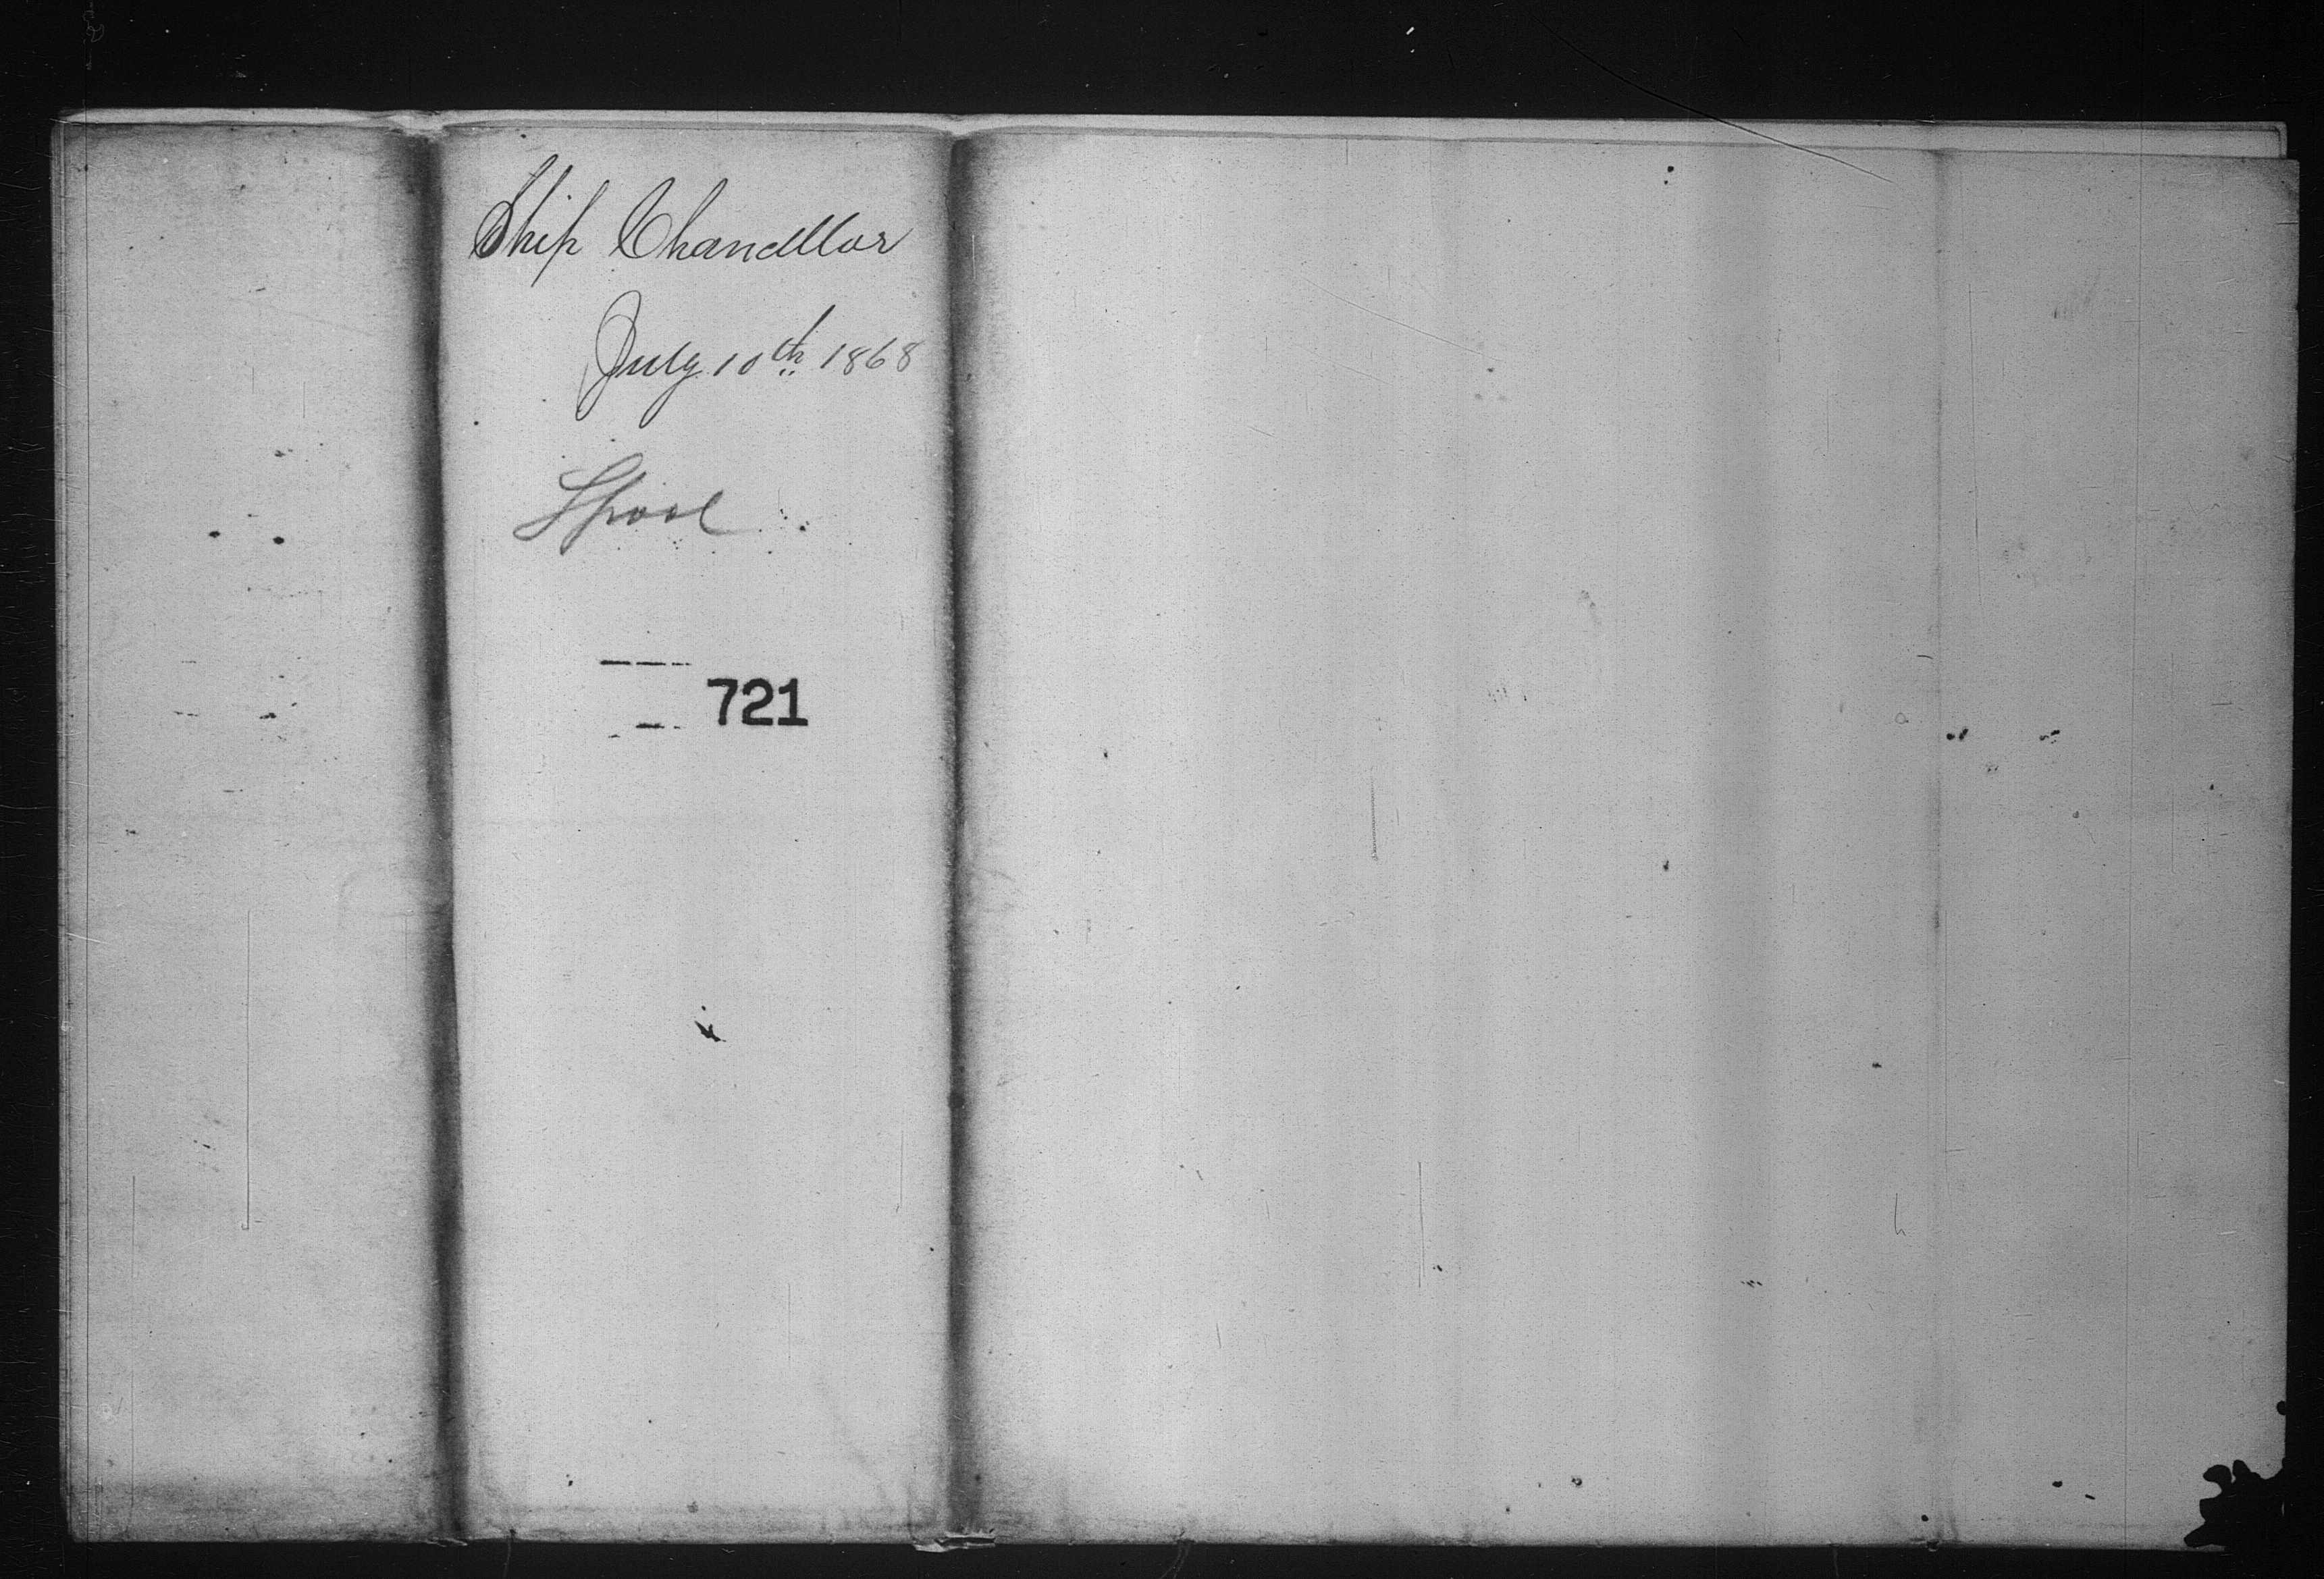 Ship Chandllor
July 10th 1868
Lpool
721